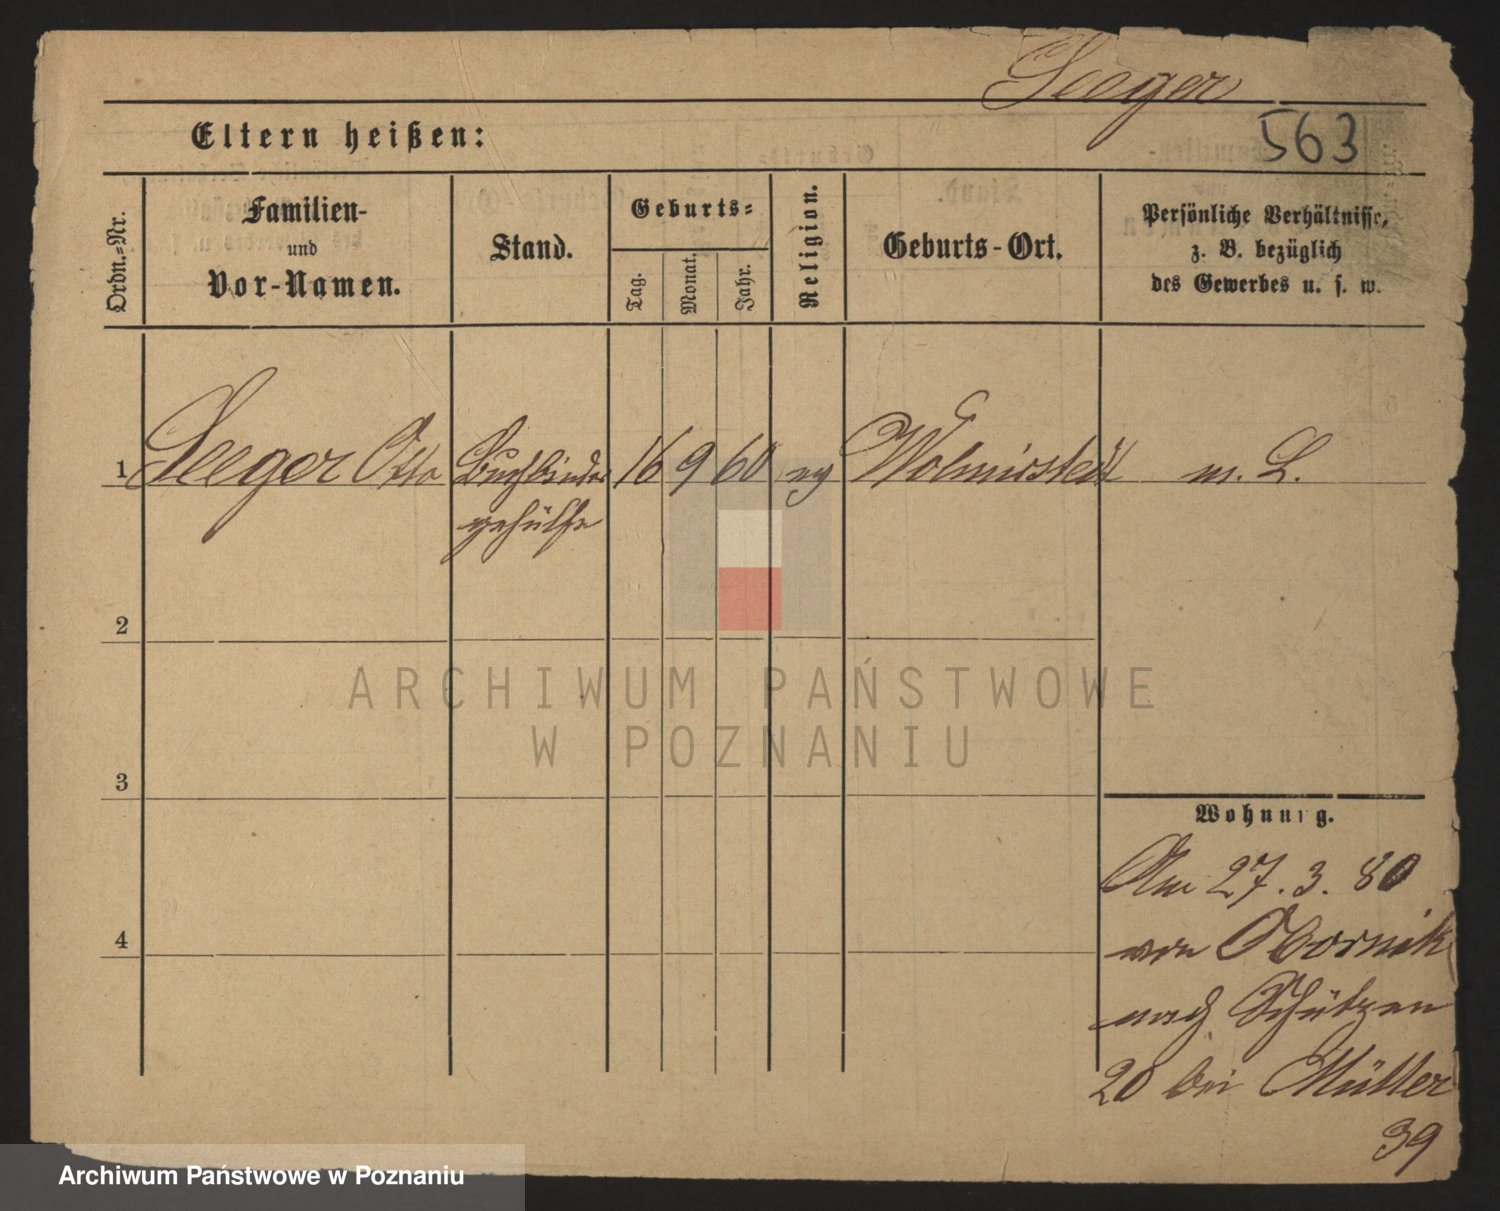 Seeger
Eltern heißen:
563
Ordn.-Nr.
Familien-
und
Vor-Namen.
Stand.
Geburts-
Tag.
Monat.
Jahr.
Religion.
Geburts-Ort.
Persönliche Verhältnisse,
z. B. bezüglich
des Gewerbes u. s. w.
1 Seeger Otto Buchbinder 16 9 60 ev Wolmirstedt m. L.
gehülfe
2
3
4
Wohnung.
Am 27. 3. 80
von Obornik
nach Schützen
20 bei Müller
39
ARCHIWUM PAŃSTWOWE
W POZNANIU
Archiwum Państwowe w Poznaniu